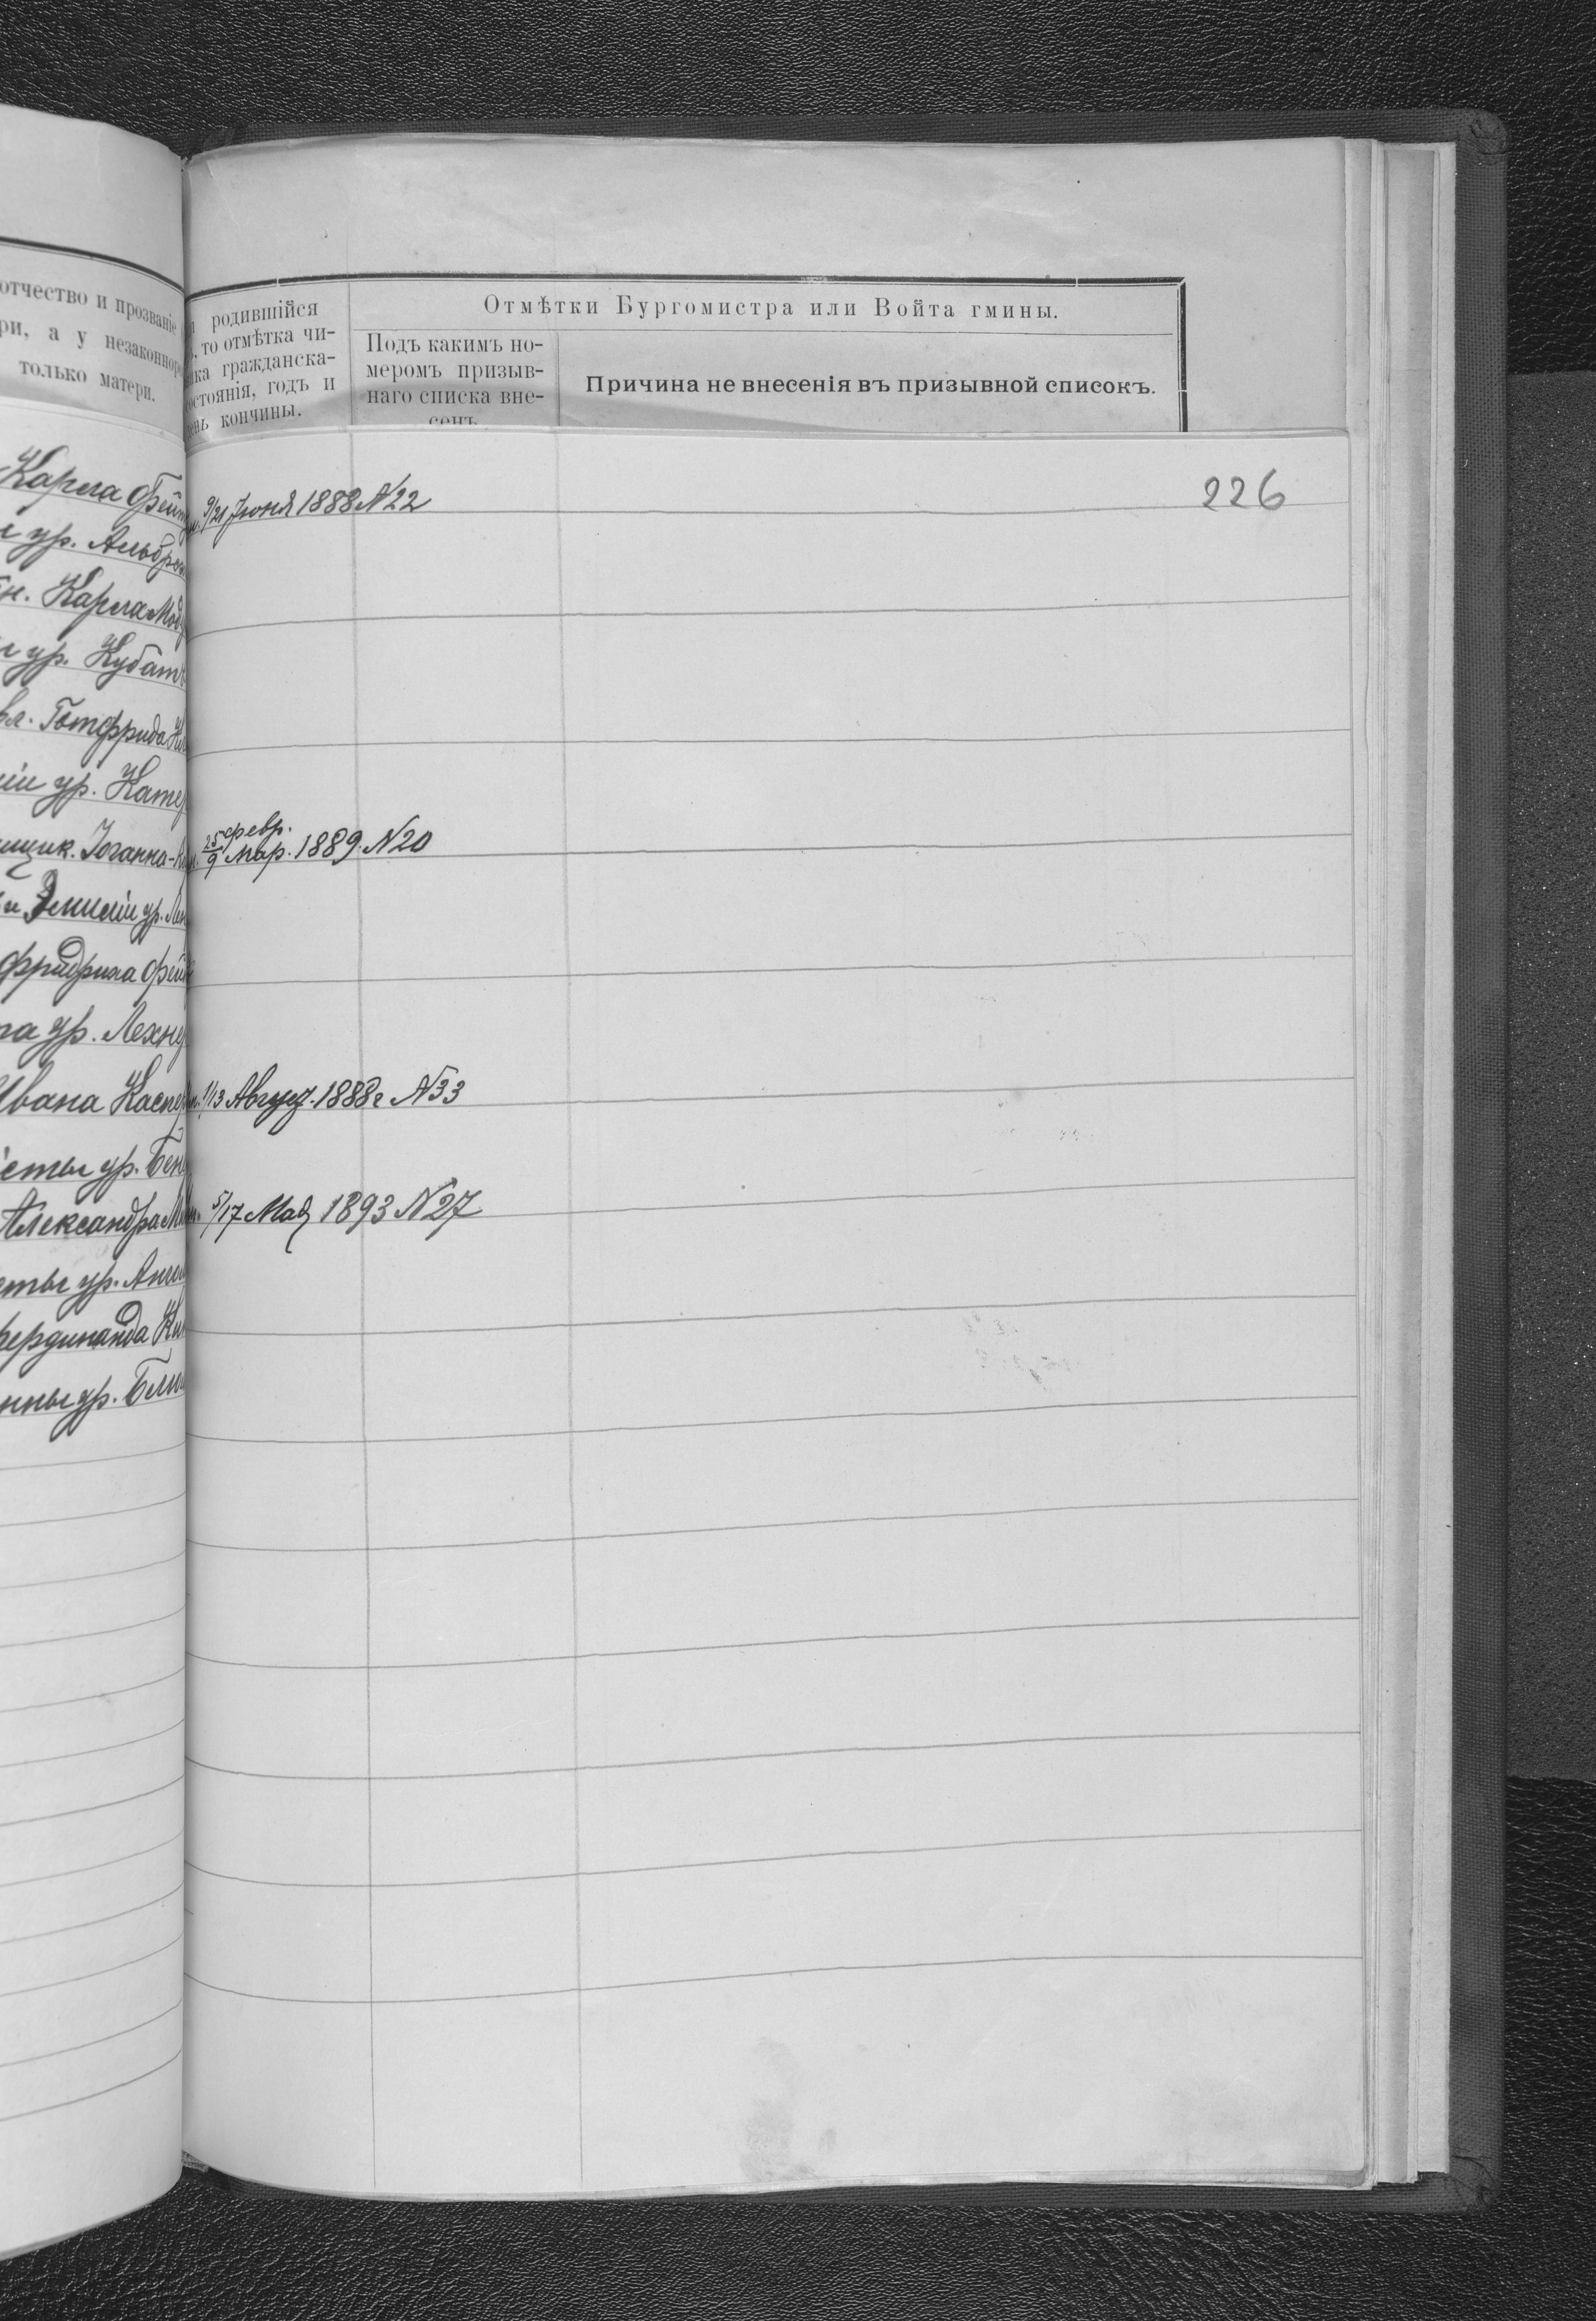 отчество и прозваніе
ри, а у незаконнорo
только матери.
родившійся
, то отмѣтка чи-
ика гражданска-
остоянія, годъ и
ень кончины.
Отмѣтки Бургомистра или Войта гмины.
Подъ какимъ но-
меромъ призыв-
наго списка вне-
сенъ
Причина не внесенія въ призывной списокъ.
226
Карла Фейт
ур. Альбре
н. Карла Мо
ур. Кубат
вл. Готфрида
іи ур. Кате
щик. Іоганна-
и Эмиліи ур. Лен
Фридриха Фей
та ур. Лехне
Ивана Каспе
еты ур. Бен
Александра М
еты ур. Анге
Фердинанда Ки
нны ур. Блю
9/21 Іюня 1888 N22
25 февр.
9 Мар. 1889. N20
1/13 Август. 1888 г N33
5/17 Мая 1893 N27